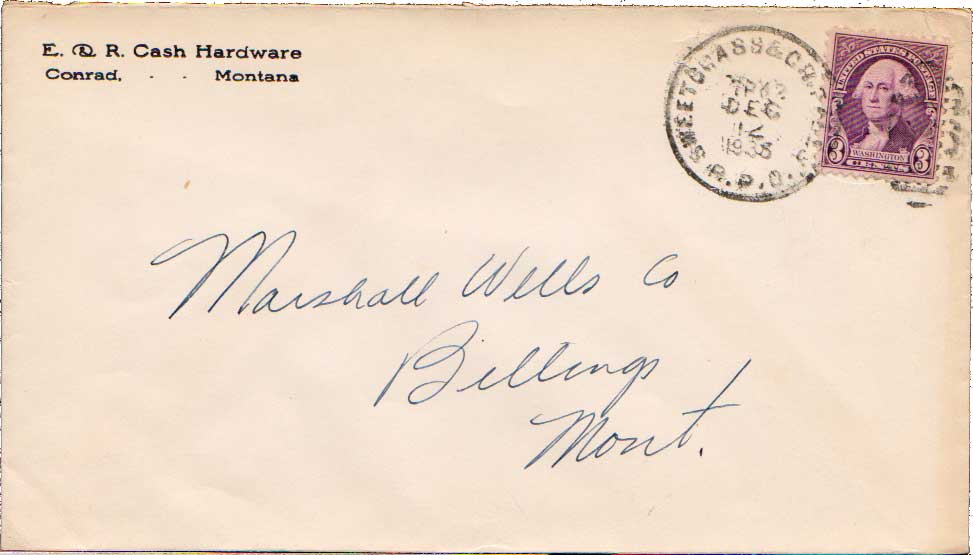 E. & R. Cash Hardware
Conrad, - - Montana
SWEETGRASS &
DEC
12
R.P.O.
UNITED STATES POSTAGE
WASHINGTON
3 CENTS 3
Marshall Wells Co
Billings
Mont.